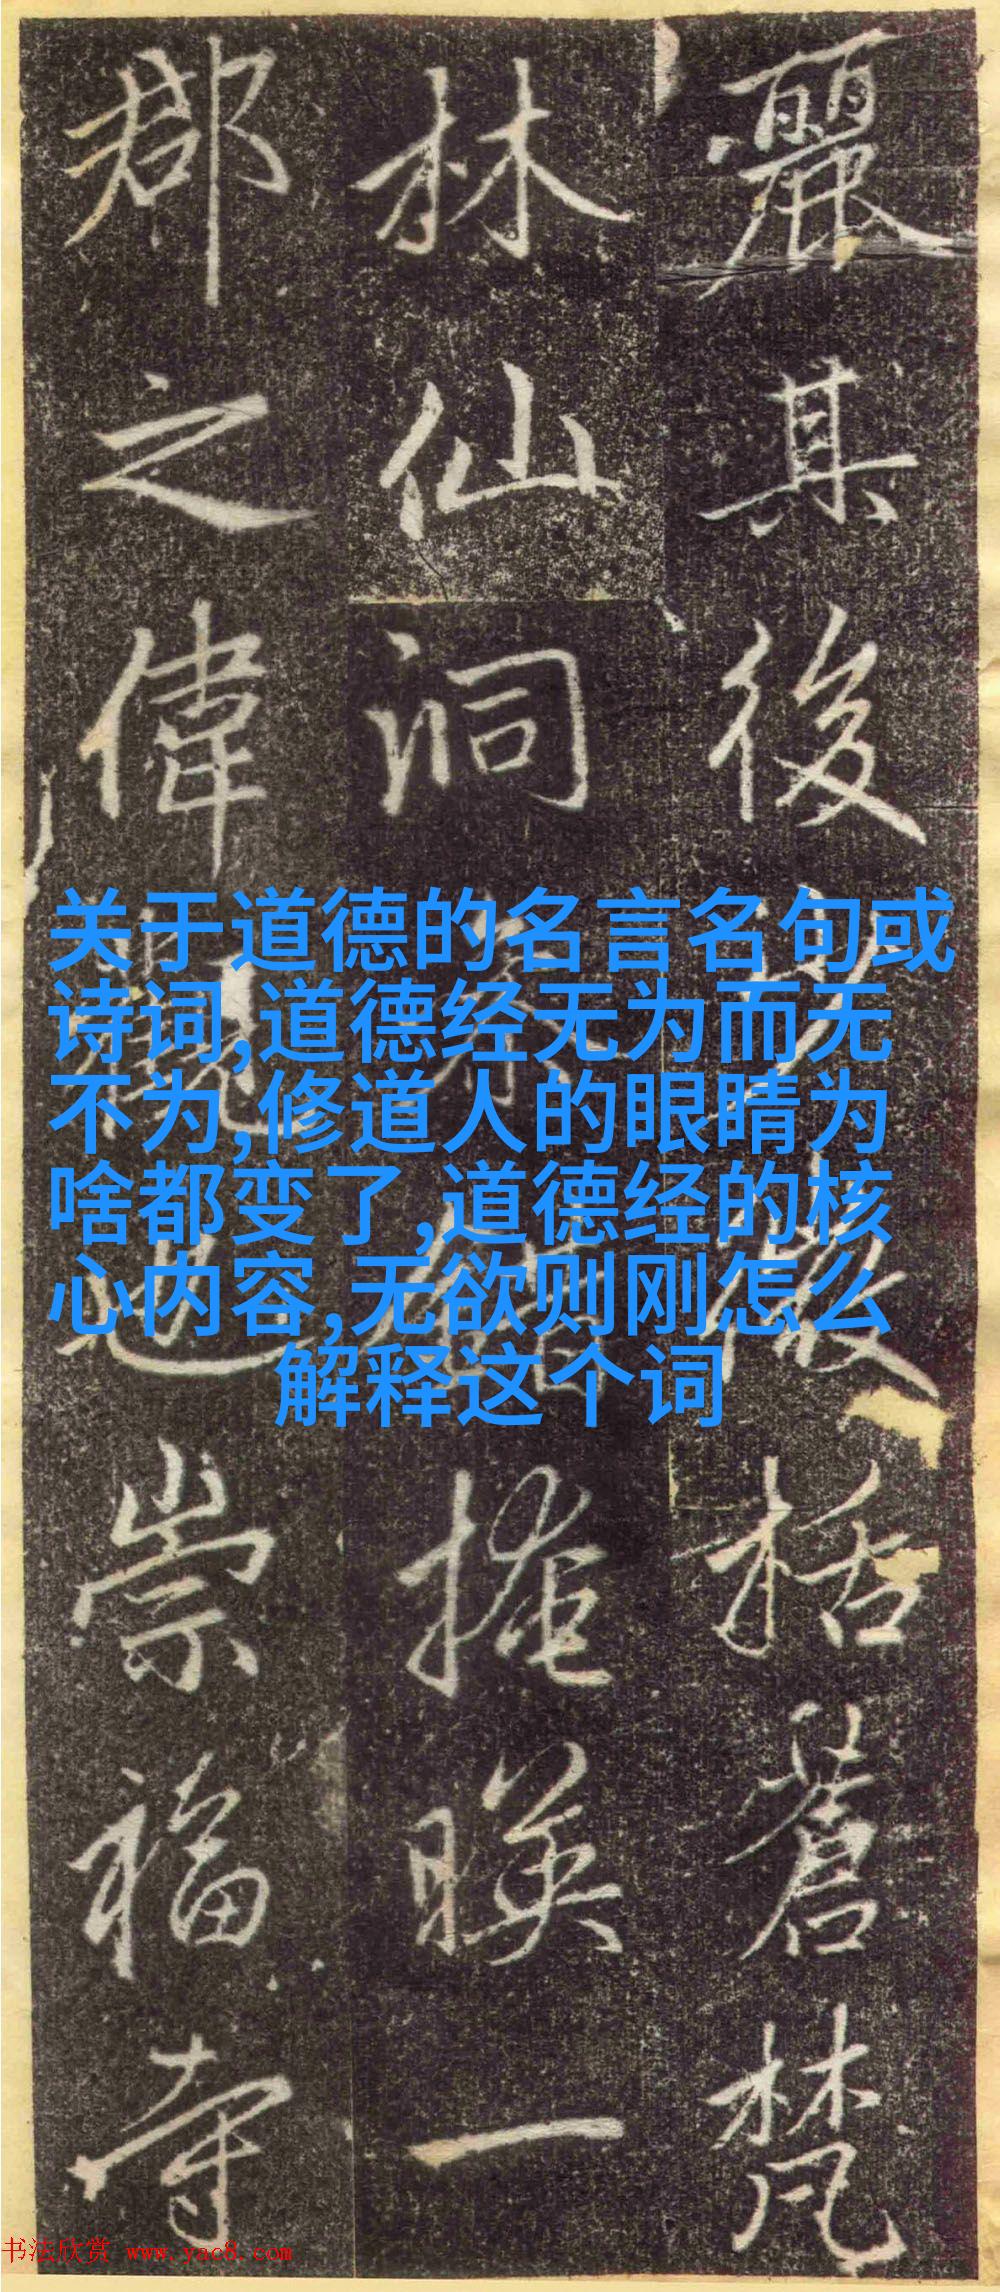 麗其後括蒼梵
林仙洞掩暎一
郡之偉觀也崇福寺
关于道德的名言名句或
诗词,道德经无为而无
不为,修道人的眼睛为
啥都变了,道德经的核
心内容,无欲则刚怎么
解释这个词
书法欣赏 www.yac8.com